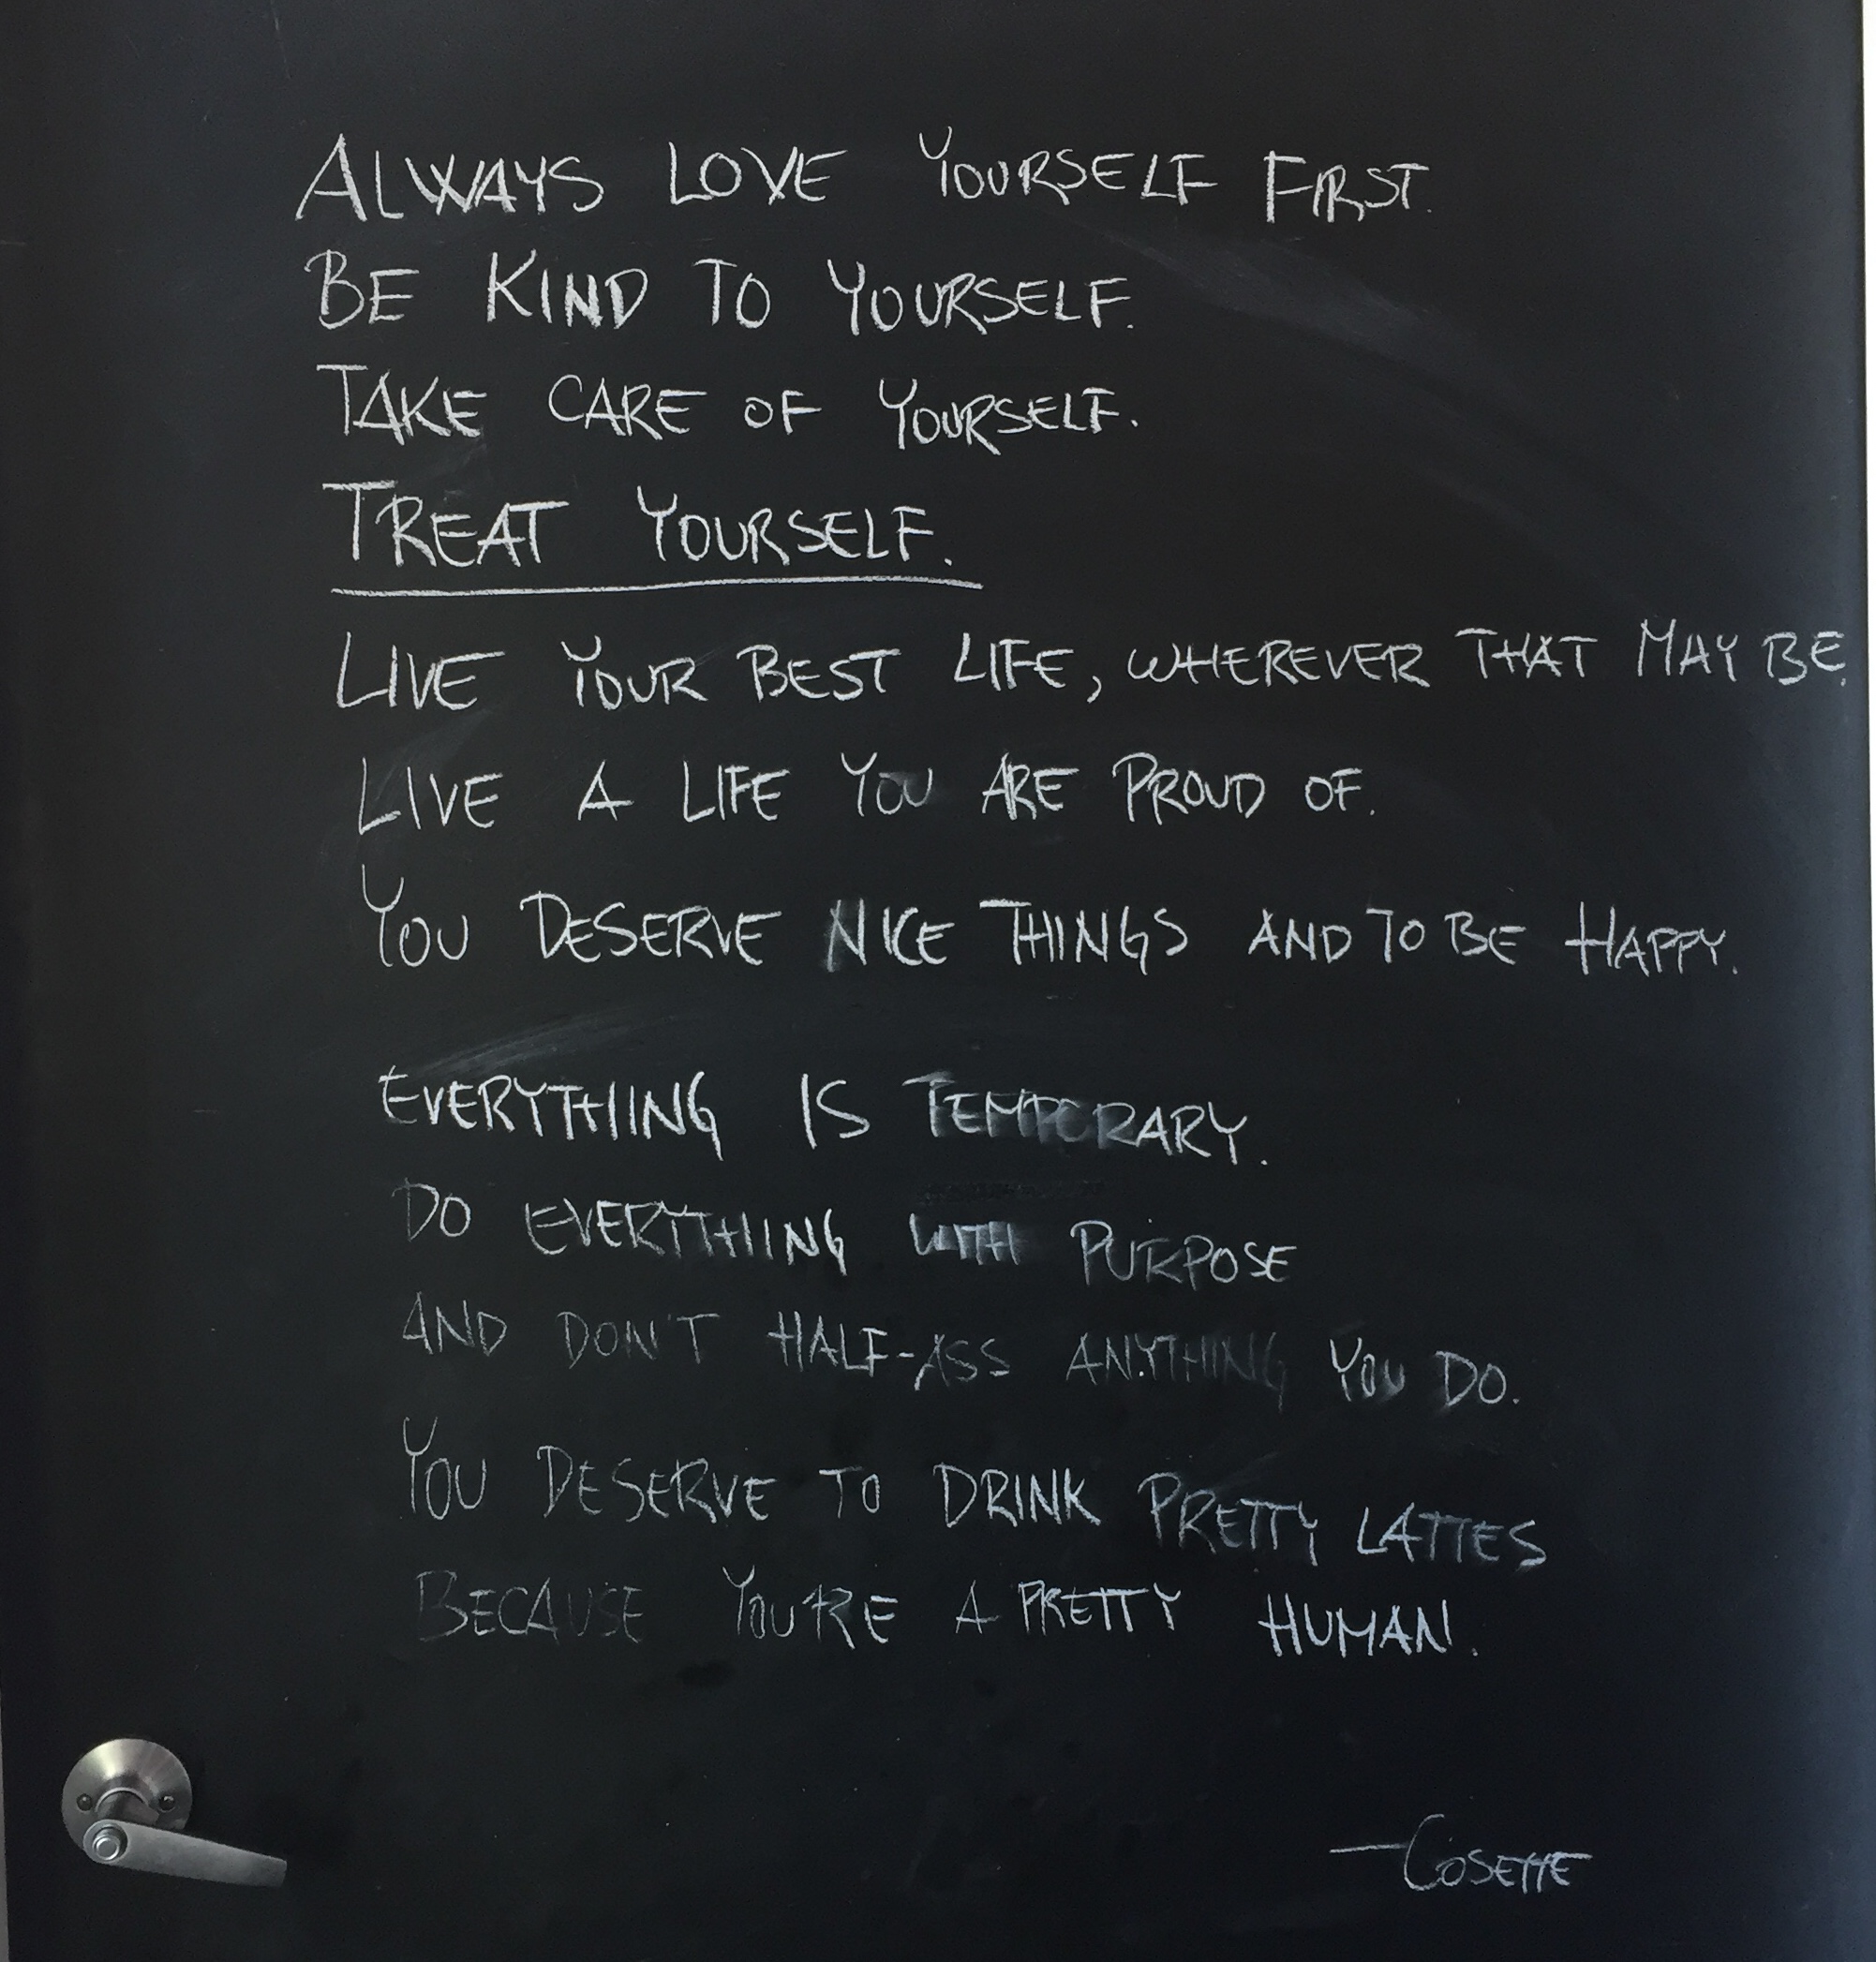 ALWAYS LOVE YOURSELF FIRST.
BE KIND TO YOURSELF.
TAKE CARE OF YOURSELF.
TREAT YOURSELF.
LIVE YOUR BEST LIFE, WHEREVER THAT MAY BE.
LIVE A LIFE YOU ARE PROUD OF.
YOU DESERVE NICE THINGS AND TO BE HAPPY.
EVERYTHING IS TEMPORARY.
DO EVERYTHING WITH PURPOSE
AND DON'T HALF-ASS ANYTHING YOU DO.
YOU DESERVE TO DRINK PRETTY LATTES
BECAUSE YOU'RE A PRETTY HUMAN.
—COSETTE